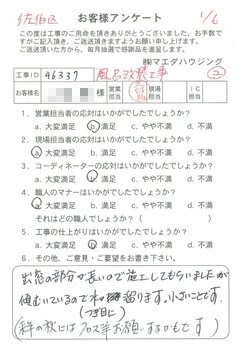 佐伯区
お客様アンケート
1/6
この度は工事のご用命を頂きありがとうございました。お手数で
すがご記入頂き、ご返送頂きますようお願い申し上げます。
ご返送頂いた方から、毎月抽選で感謝品を進呈しております。
㈱マエダハウジング
工事ID 46337 風呂改装工事
様 営業担当 現場担当 IC担当
1. 営業担当者の応対はいかがでしたでしょうか?
a. 大変満足 b. 満足 c. やや不満 d. 不満
2. 現場担当者の応対はいかがでしたでしょうか?
a. 大変満足 b. 満足 c. やや不満 d. 不満
3. コーディネーターの応対はいかがでしたでしょうか?
a. 大変満足 b. 満足 c. やや不満 d. 不満
4. 職人のマナーはいかがでしたでしょうか?
a. 大変満足 b. 満足 c. やや不満 d. 不満
それはどの職人でしょうか?( )
5. 工事の仕上がりはいかがでしたでしょうか?
a. 大変満足 b. 満足 c. やや不満 d. 不満
6. その他、ご意見・ご要望をお書き下さい。
出窓の部分が長いので施工してもらいましたが
傾むいているので水が溜ります。小さいことです。
(つぎ目に)
(来年の秋にはクロス等お願いするかもです)